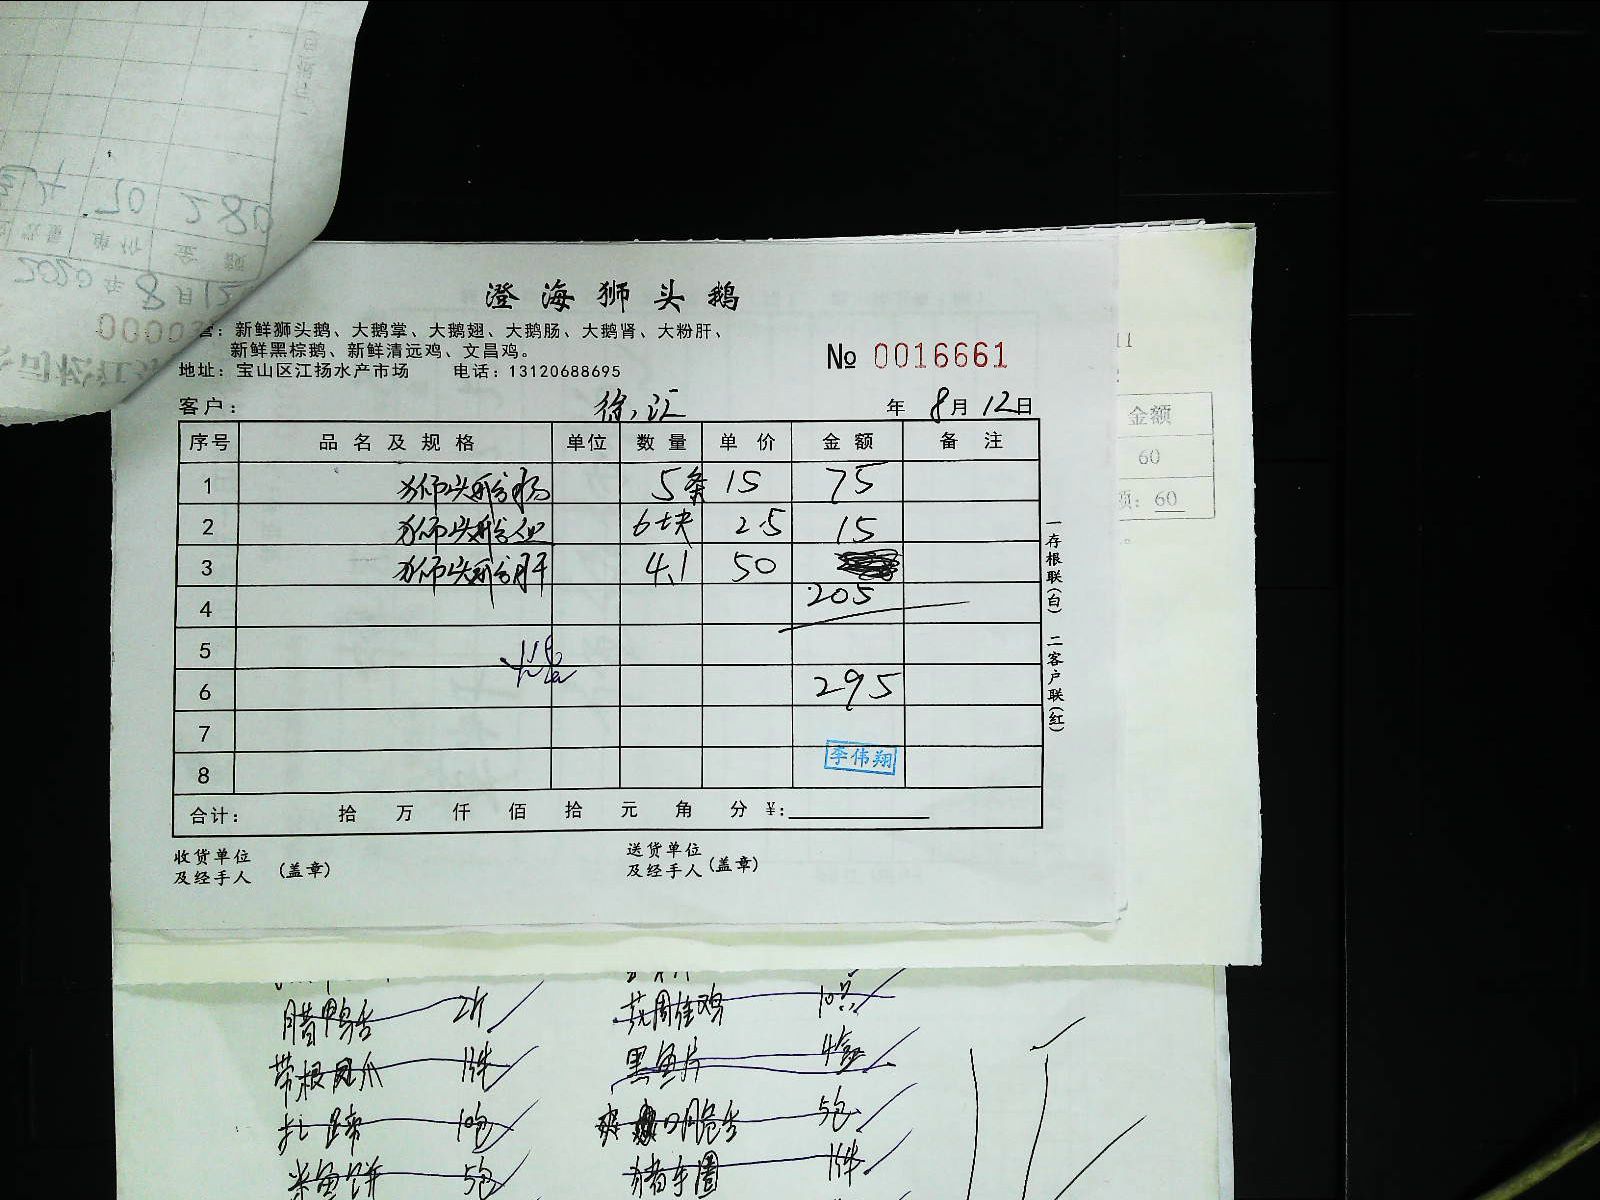 澄海狮头鹅
营：新鲜狮头鹅、大鹅掌、大鹅翅、大鹅肠、大鹅肾、大粉肝、
新鲜黑棕鹅、新鲜清远鸡、文昌鸡。
地址：宝山区江扬水产市场 电话：13120688695
№ 0016661
客户： 徐汇 年 8月 12日
序号 品名及规格 单位 数量 单价 金额 备注
1 狮头鹅肠 5条 15 75
2 狮头鹅 6块 2.5 15
3 狮头鹅肝 4.1 50
4 205
5
6 295
7
李伟翔
8
合计： 拾 万 仟 佰 拾 元 角 分 ¥：
收货单位
及经手人 (盖章)
送货单位
及经手人 (盖章)
一存根联(白) 二客户联(红)
2020年8月12
单价 金额
70 280
11
金额
60
项：60
腊鸭舌 2斤
带根凤爪 1件
扎蹄 10包
米鱼饼 5包
黑鱼片 4盒
爽口脆舌 5包
1件